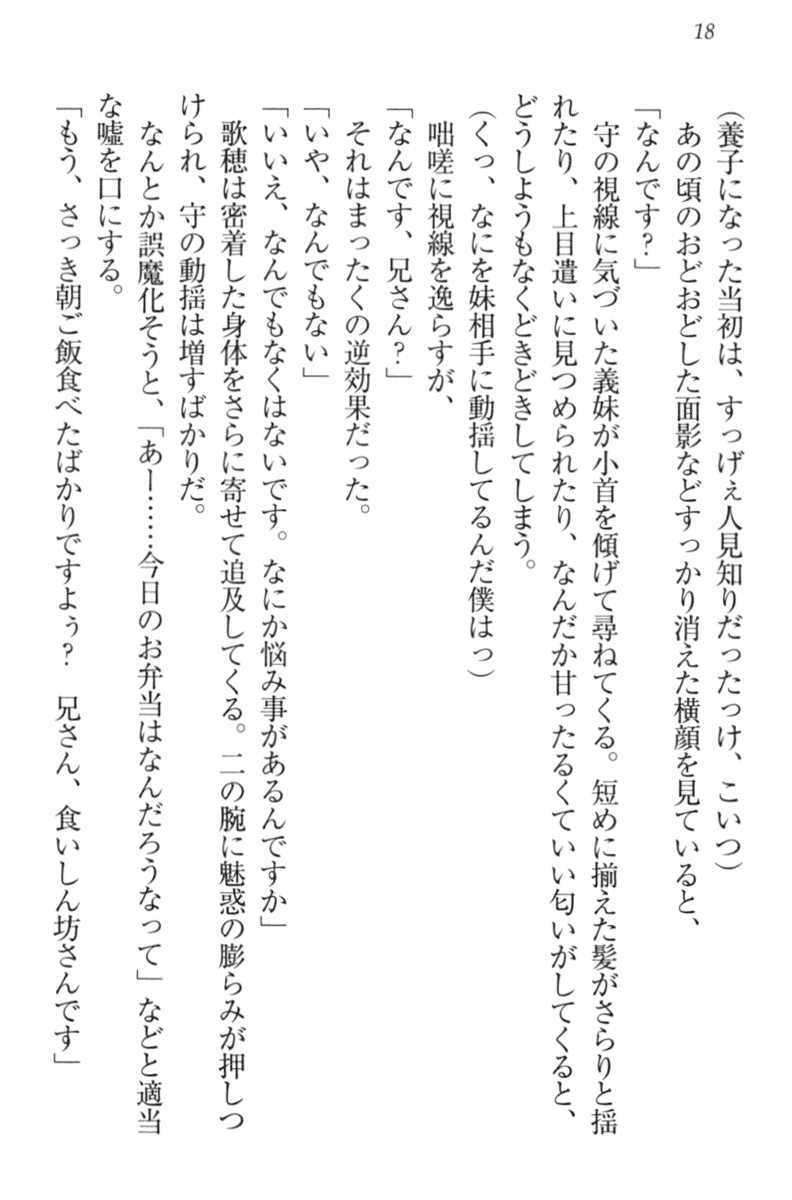 18
(養子になった当初は、すっげぇ人見知りだったっけ、こいつ)
あの頃のおどおどした面影などすっかり消えた横顔を見ていると、
「なんです?」
守の視線に気づいた義妹が小首を傾げて尋ねてくる。短めに揃えた髪がさらりと揺
れたり、上目遣いに見つめられたり、なんだか甘ったるくていい匂いがしてくると、
どうしようもなくどきどきしてしまう。
(くっ、なにを妹相手に動揺してるんだ僕はっ)
咄嗟に視線を逸らすが、
「なんです、兄さん?」
それはまったくの逆効果だった。
「いや、なんでもない」
「いいえ、なんでもなくはないです。なにか悩み事があるんですか」
歌穂は密着した身体をさらに寄せて追及してくる。二の腕に魅惑の膨らみが押しつ
けられ、守の動揺は増すばかりだ。
なんとか誤魔化そうと、「あー……今日のお弁当はなんだろうなって」などと適当
な嘘を口にする。
「もう、さっき朝ご飯食べたばかりですよぅ? 兄さん、食いしん坊さんです」